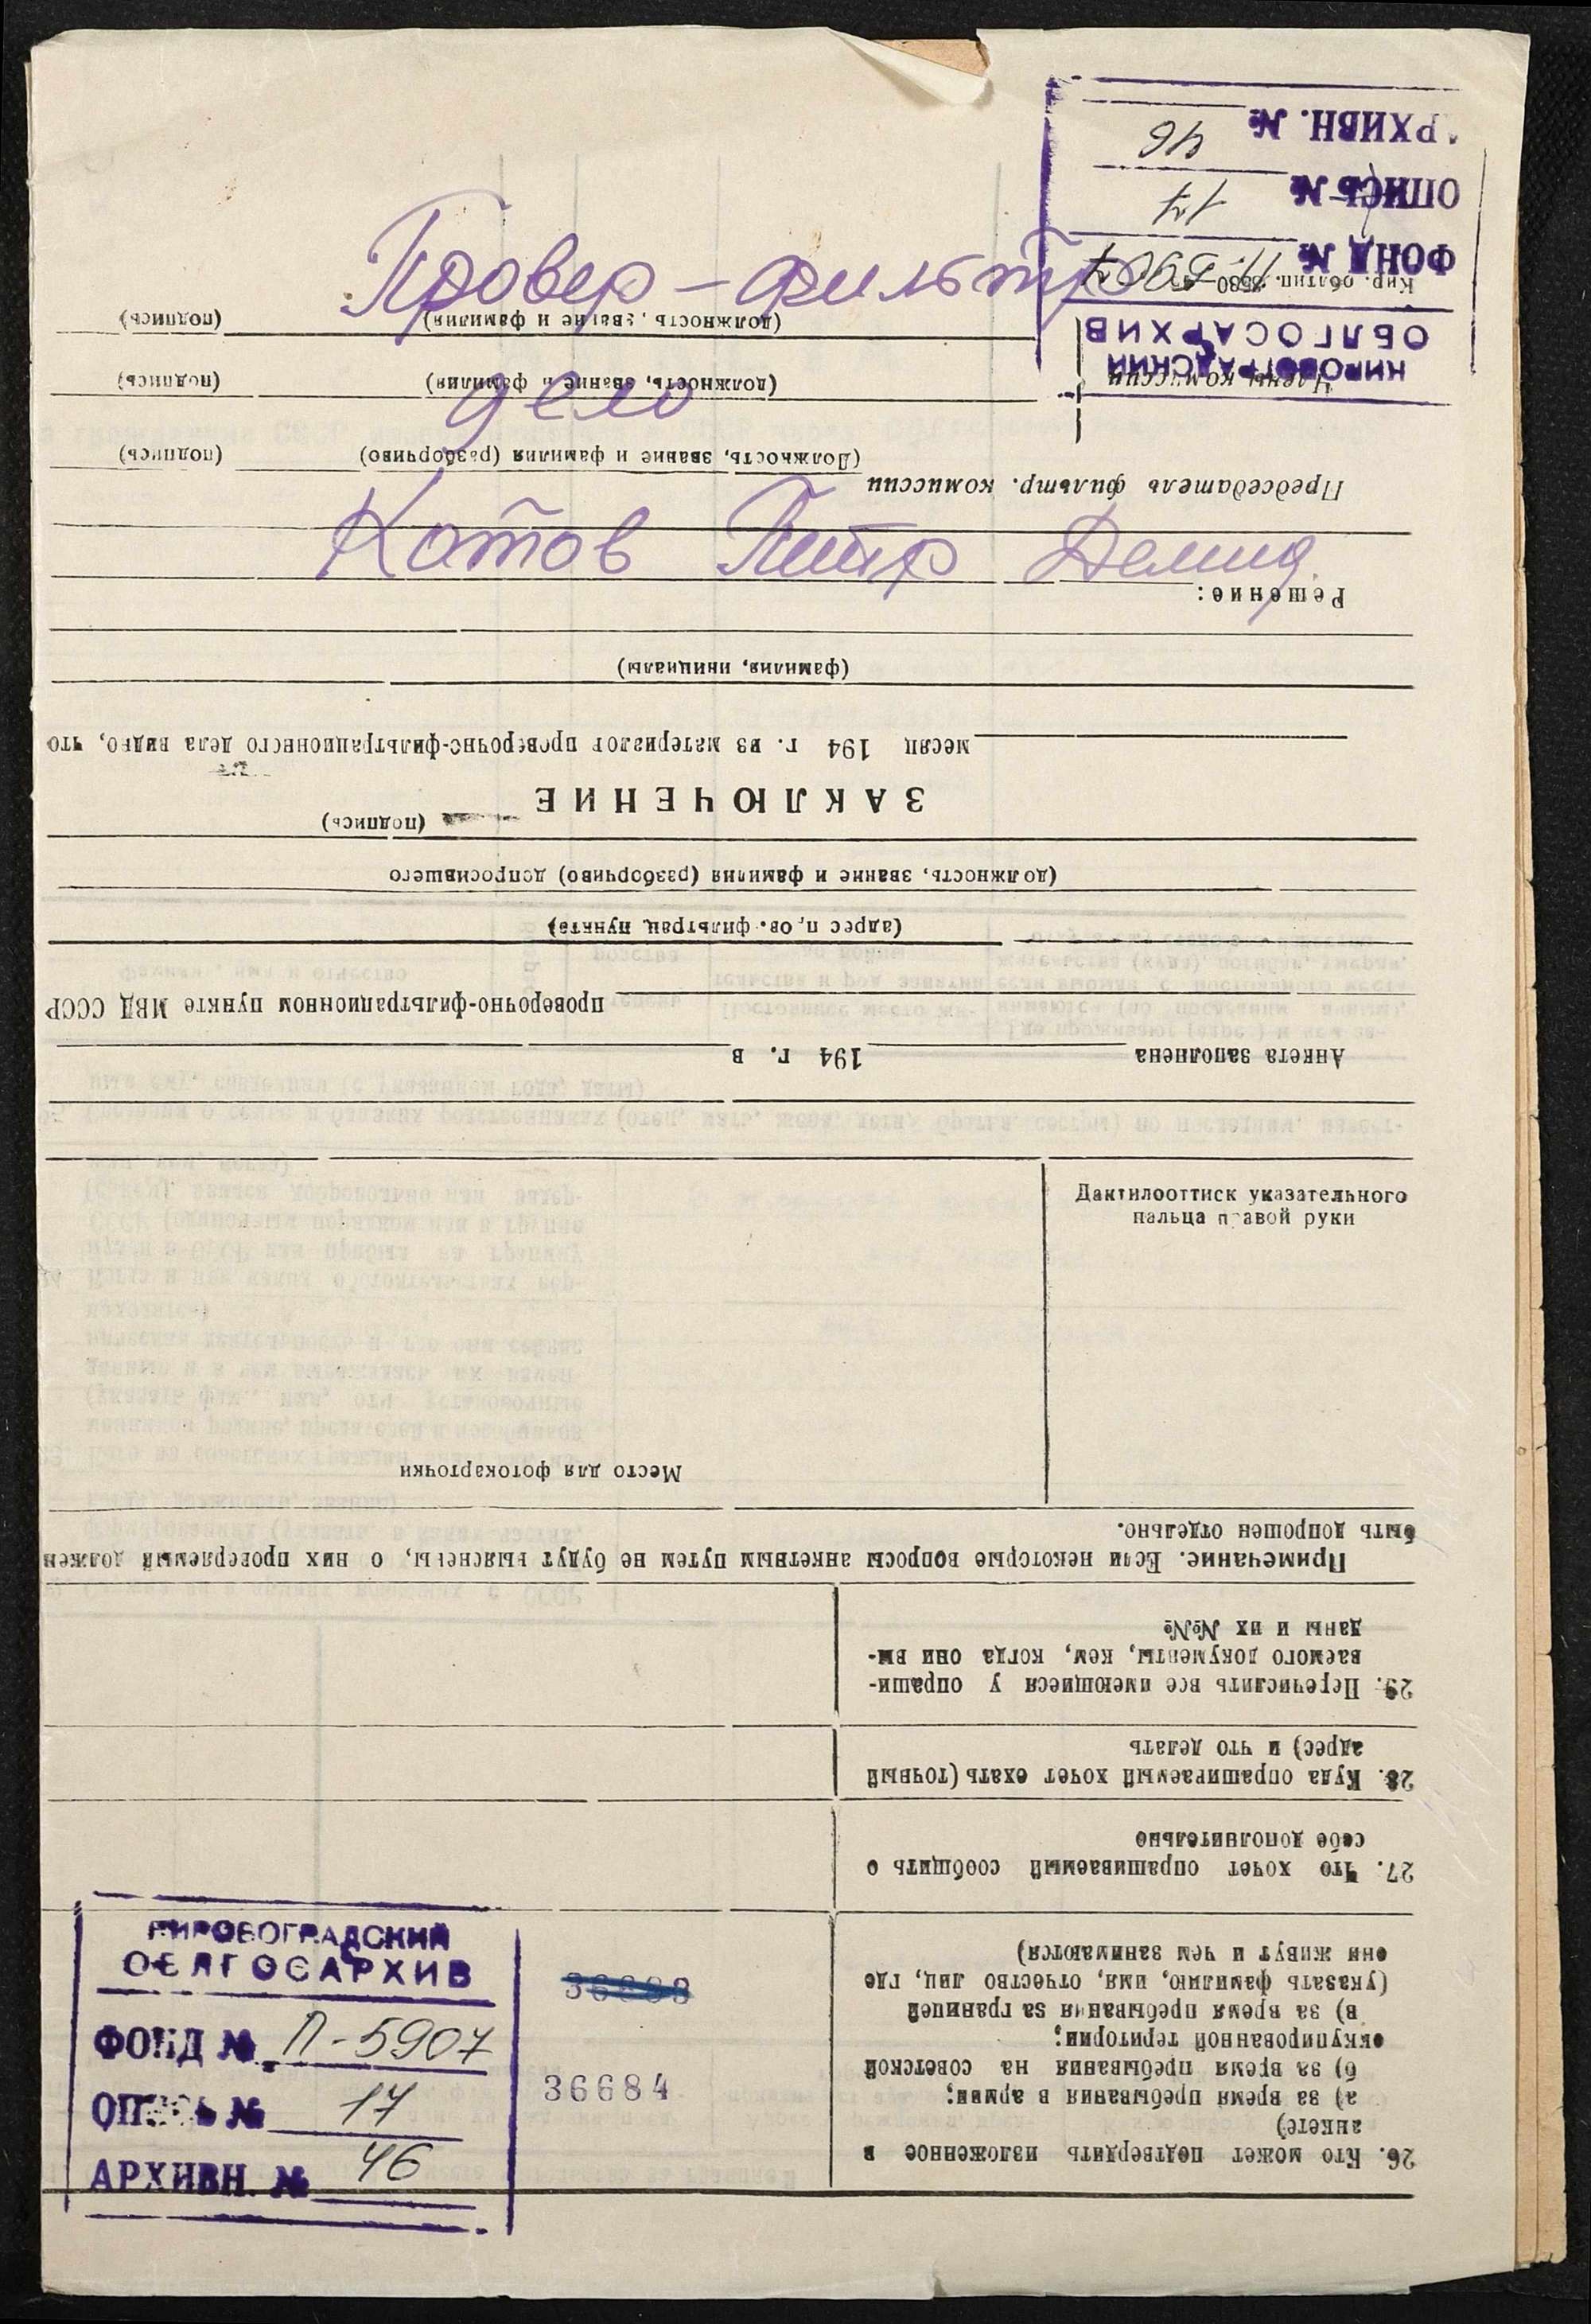 Провер-фильтр
дело
Котов Петр Демид.
КИРОВОГРАДСКИЙ
ОБЛГОСАРХИВ
ФОНД № П-5907
ОПИСЬ № 17
АРХИВН. № 46
36684
Дактилооттиск указательного
пальца правой руки
26. Кто может подтвердить изложенное в
анкете)
а) за время пребывания в армии;
б) за время пребывания на советской
оккупированной територии;
в) за время пребывания за границей
(указать фамилию, имя, отчество лиц, где
они живут и чем занимаются)
27. Что хочет опрашиваемый сообщить о
себе дополнительно
28. Куда опрашиваемый хочет ехать (точный
адрес) и что делать
29. Перечислить все имеющиеся у опраши-
ваемого документы, кем, когда они вы-
даны и их №№
Примечание. Если некоторые вопросы анкетным путем не будут выяснены, о них проверяемый должен
быть допрошен отдельно.
Место для фотокарточки
Анкета заполнена 194 г. в
проверочно-фильтрационном пункте МВД СССР
(адрес пров. фильтрац. пункта)
(должность, звание и фамилия (разборчиво) допросившего
(подпись)
ЗАКЛЮЧЕНИЕ
месяц 194 г. из материалов проверочно-фильтрационного дела видно, что
(фамилия, инициалы)
Решение:
Председатель фильтр. комиссии
(Должность, звание и фамилия (разборчиво) (подпись)
Члены комиссии
(должность, звание и фамилия) (подпись)
(должность, звание и фамилия) (подпись)
Кир. облтип.
КИРОВОГРАДСКИЙ
ОБЛГОСАРХИВ
ФОНД № П-5907
ОПИСЬ № 17
АРХИВН. № 46